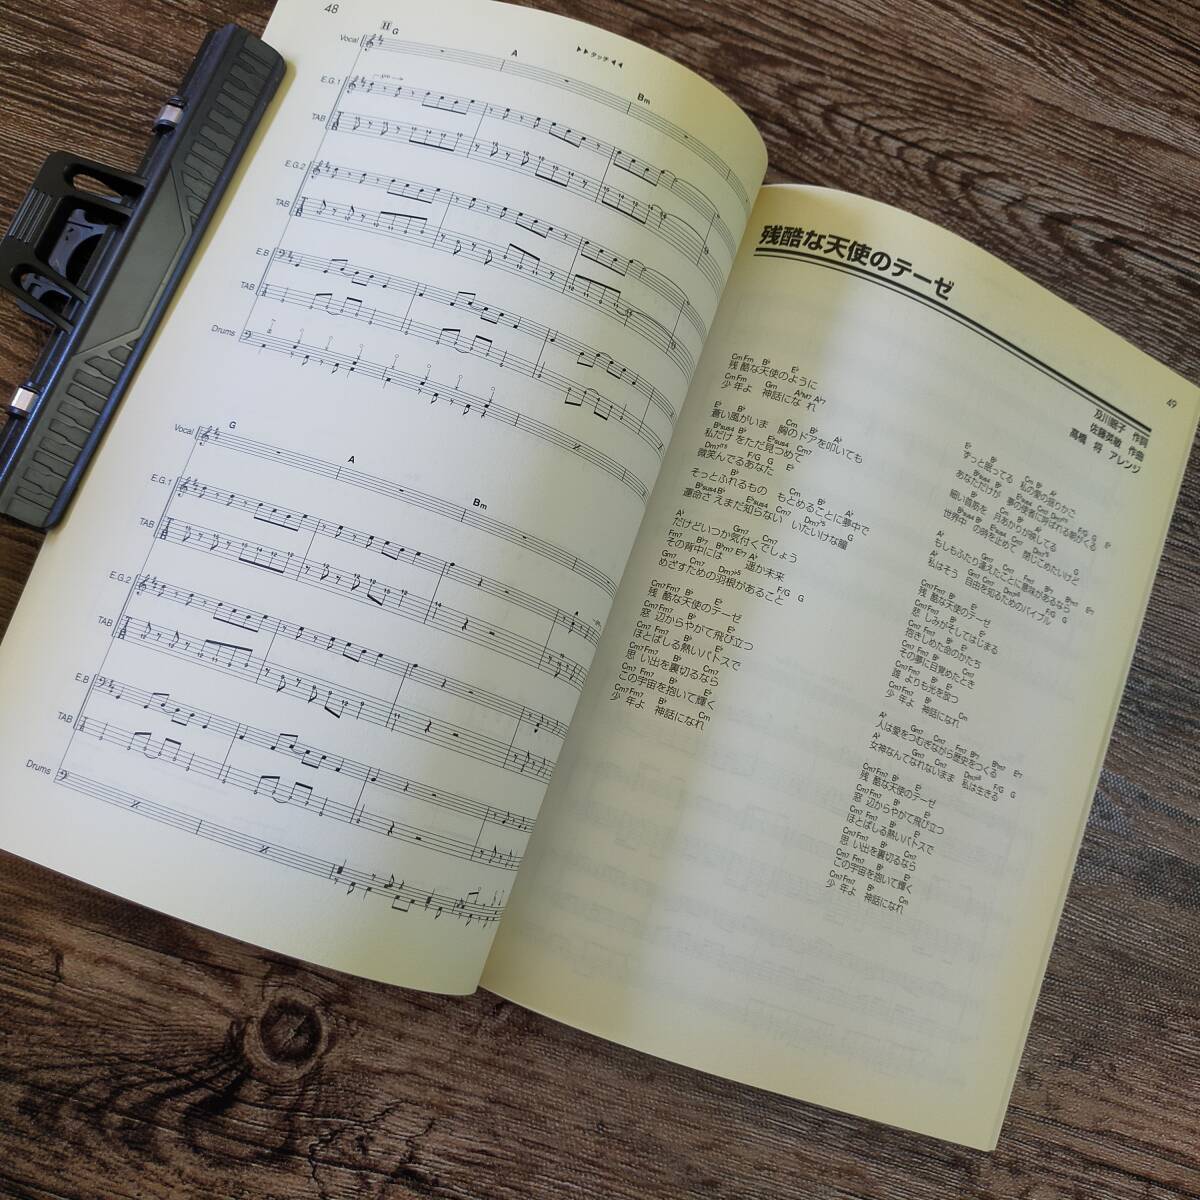 48
▶▶タッチ◀◀
H G A Bm
Vocal
E.G.1
TAB
E.G.2
TAB
E.B
TAB
Drums
G A Bm
Vocal
E.G.1
TAB
E.G.2
TAB
E.B
TAB
Drums
49
残酷な天使のテーゼ
及川眠子 作詞
佐藤英敏 作曲
高橋 将 アレンジ
Cm Fm B♭ E♭
残酷な天使のように
Cm Fm Gm A♭M7 A♭7
少年よ 神話になれ
E♭ B♭ Cm B♭ A♭
蒼い風がいま 胸のドアを叩いても
B♭sus4 B♭ E♭sus4 Cm7
私だけをただ見つめて
Dm7♭5 F/G G E♭
微笑んでるあなた
B♭ Cm B♭ A♭
そっとふれるもの もとめることに夢中で
B♭sus4 B♭ E♭sus4 Cm7 Dm7♭5 G
運命さえまだ知らない いたいけな瞳
A♭ Gm7 Cm7
だけどいつか気付くでしょう
Fm7 B♭7 B♭m7 E♭7 A♭
その背中には 遥か未来
Gm7 Cm7 Dm7♭5 F/G G
めざすための羽根があること
Cm7 Fm7 B♭ E♭
残酷な天使のテーゼ
Cm7 Fm7 B♭ E♭
窓辺からやがて飛び立つ
Cm7 Fm7 B♭ E♭
ほとばしる熱いパトスで
Cm7 Fm7 B♭ Cm7
思い出を裏切るなら
Cm7 Fm7 B♭ E♭
この宇宙を抱いて輝く
Cm7 Fm7 B♭ Cm
少年よ 神話になれ
E♭ B♭ Cm B♭ A♭
ずっと眠ってる 私の愛の揺りかご
B♭sus4 B♭ E♭sus4 Cm7 Dm7♭5 F/G G E♭
あなただけが 夢の使者に呼ばれる朝がくる
B♭ Cm B♭ A♭
細い首筋を 月あかりが映してる
B♭sus4 B♭ E♭sus4 Cm7 Dm7♭5 G
世界中の時を止めて 閉じこめたいけど
A♭ Gm7 Cm7 Fm7 B♭7 B♭m7 E♭7
もしもふたり逢えたことに意味があるなら
A♭ Gm7 Cm7 Dm7♭5 F/G G
私はそう 自由を知るためのバイブル
Cm7 Fm7 B♭ E♭
残酷な天使のテーゼ
Cm7 Fm7 B♭ E♭
悲しみがそしてはじまる
Cm7 Fm7 B♭ E♭
抱きしめた命のかたち
Cm7 Fm7 B♭
その夢に目覚めたとき
Cm7 Fm7 B♭ E♭
誰よりも光を放つ
Cm7 Fm7 B♭ Cm
少年よ 神話になれ
A♭ Gm7 Cm7 Fm7 B♭7 B♭m7 E♭7
人は愛をつむぎながら歴史をつくる
A♭ Gm7 Cm7 Dm7♭5 F/G G
女神なんてなれないまま 私は生きる
Cm7 Fm7 B♭ E♭
残酷な天使のテーゼ
Cm7 Fm7 B♭ E♭
窓辺からやがて飛び立つ
Cm7 Fm7 B♭ E♭
ほとばしる熱いパトスで
Cm7 Fm7 B♭ Cm7
思い出を裏切るなら
Cm7 Fm7 B♭ E♭
この宇宙を抱いて輝く
Cm7 Fm7 B♭ Cm
少年よ 神話になれ